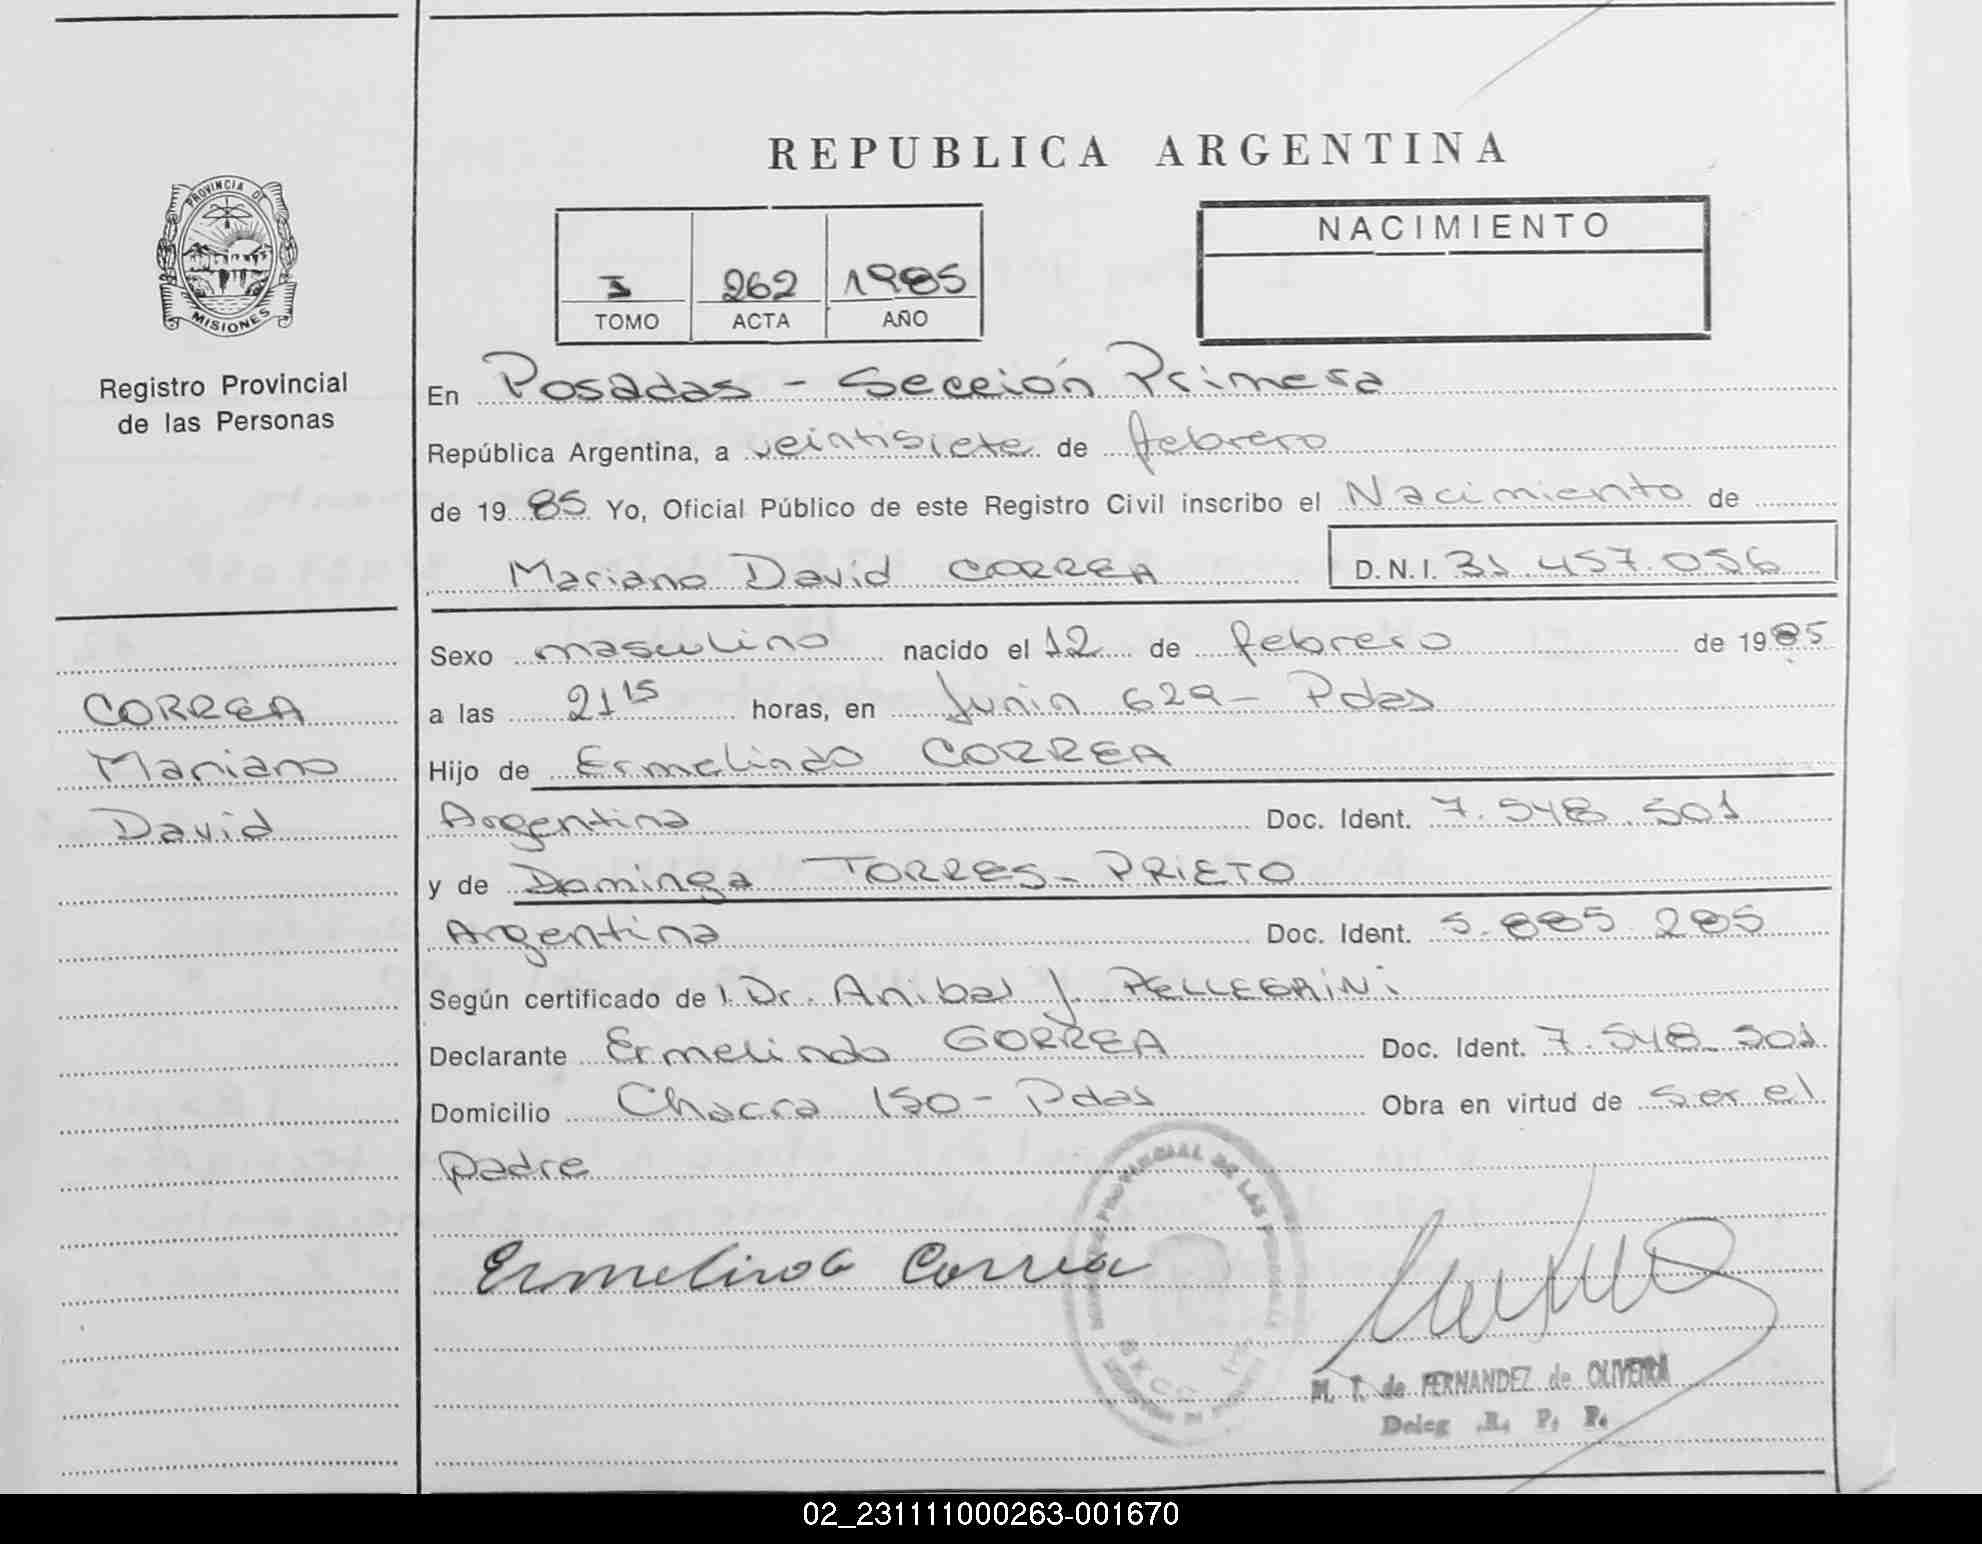 REPUBLICA ARGENTINA
PROVINCIA DE
MISIONES
Registro Provincial
de las Personas
I 262 1985
TOMO ACTA AÑO
NACIMIENTO
En Posadas - Sección Primera
República Argentina, a veintisiete de febrero
de 1985 Yo, Oficial Público de este Registro Civil inscribo el Nacimiento de
Mariano David CORREA D.N.I. 31.457.056
CORREA
Mariano
David
Sexo masculino nacido el 12 de febrero de 1985
a las 21 15 horas, en Junin 629 - Pdas
Hijo de Ermelindo CORREA
Argentina Doc. Ident. 7.548.501
y de Dominga TORRES - PRIETO
Argentina Doc. Ident. 5.885.285
Según certificado de l Dr. Anibal J. PELLEGRINI
Declarante Ermelindo CORREA Doc. Ident. 7.548.501
Domicilio Chacra 150 - Pdas Obra en virtud de ser el
padre
PROVINCIAL DE LAS
Ermelindo Correa
M. T. de FERNANDEZ de OLIVEIRA
Deleg. R. P. P.
02_231111000263-001670